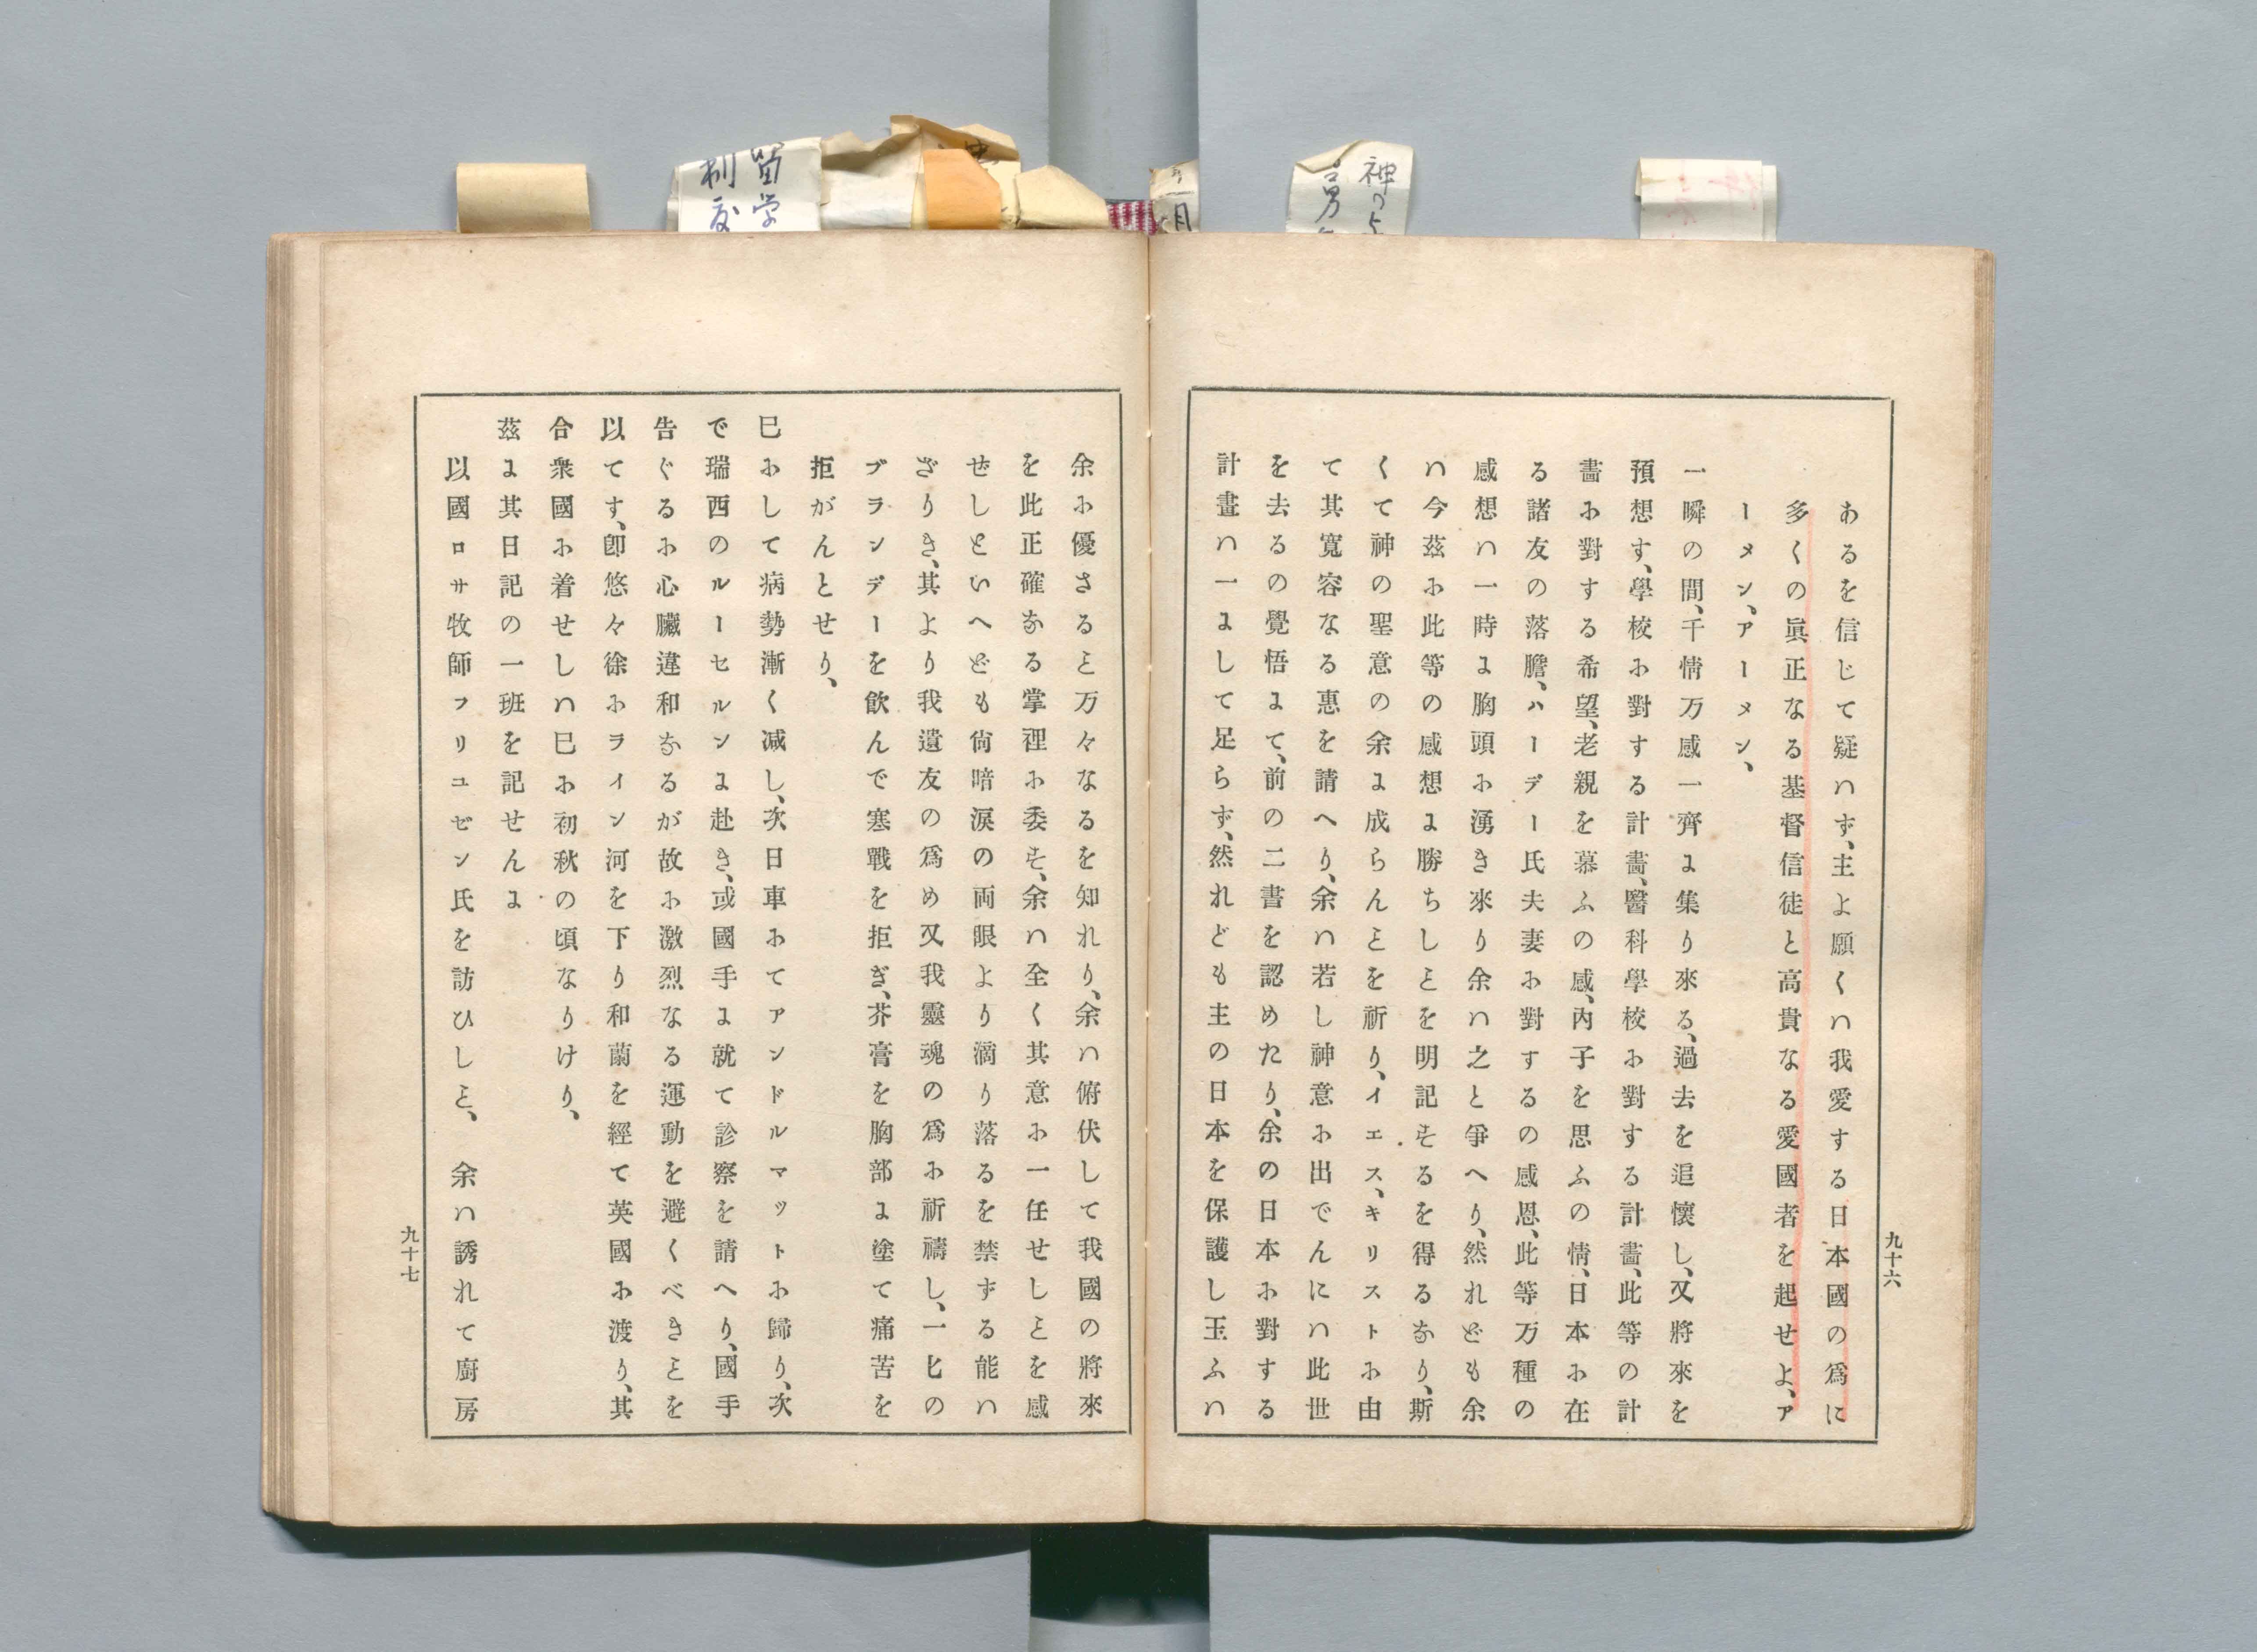 神のよ
九十六
あるを信じて疑ハず、主よ願くハ我愛する日本國の爲に
多くの眞正なる基督信徒と高貴なる愛國者を起せよ、ア
ーメン、アーメン、
一瞬の間、千情万感一齊に集り來る、過去を追懷し、又將來を
預想す、學校に對する計畵、醫科學校に對する計畵、此等の計
畵に對する希望、老親を慕ふの感、内子を思ふの情、日本に在
る諸友の落膽、ハーデー氏夫妻に對するの感恩、此等万種の
感想ハ一時に胸頭に湧き來り余ハ之と爭へり、然れども余
ハ今茲に此等の感想に勝ちしヿを明記するを得るなり、斯
くて神の聖意の余に成らんヿを祈り、イエス、キリストに由
て其寛容なる惠を請へり、余ハ若し神意に出でんにハ此世
を去るの覺悟にて、前の二書を認めたり、余の日本に對する
計畫ハ一にして足らず、然れども主の日本を保護し玉ふハ
余に優さるヿ万々なるを知れり、余ハ俯伏して我國の將來
を此正確なる掌裡に委す、余ハ全く其意に一任せしヿを感
ぜしといへども尙暗涙の両眼より滴り落るを禁ずる能ハ
ざりき、其より我遺友の爲め又我靈魂の爲に祈禱し、一匕の
ブランデーを飮んで寒戰を拒ぎ、芥膏を胸部に塗て痛苦を
拒がんとせり、
巳にして病勢漸く減し、次日車にてアンドルマットに歸り、次
で瑞西のルーセルンに赴き、或國手に就て診察を請へり、國手
告ぐるに心臟違和なるが故に激烈なる運動を避くべきヿを
以てす、卽悠々徐にライン河を下り和蘭を經て英國に渡り、其
合衆國に着せしハ巳に初秋の頃なりけり、
茲に其日記の一班を記せんに
以國ロサ牧師フリユゼン氏を訪ひしヿ、 余ハ誘れて廚房
九十七
留学